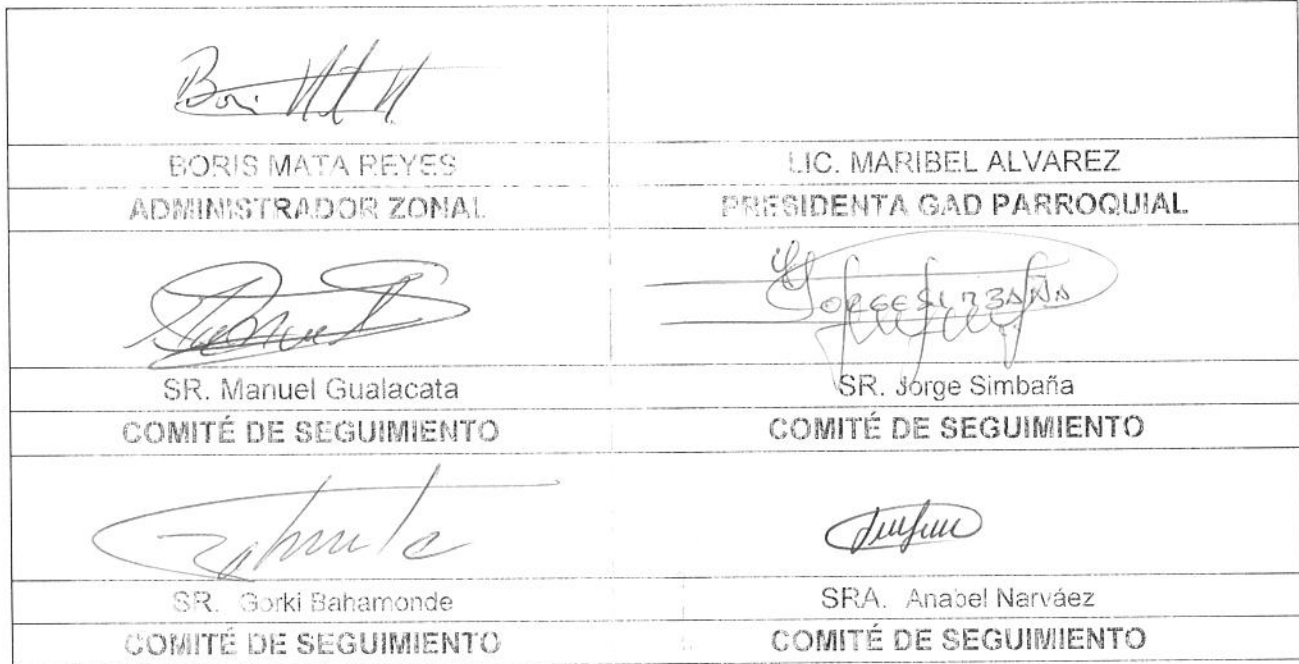 BORIS MATA REYES
LIC. MARIBEL ALVAREZ
ADMINISTRADOR ZONAL
PRESIDENTA GAD PARROQUIAL
JORGE SIMBAÑA
SR. Manuel Gualacata
SR. Jorge Simbaña
COMITÉ DE SEGUIMIENTO
COMITÉ DE SEGUIMIENTO
SR. Gorki Bahamonde
SRA. Anabel Narváez
COMITÉ DE SEGUIMIENTO
COMITÉ DE SEGUIMIENTO